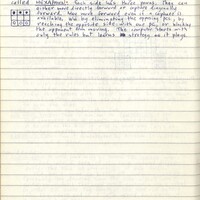 called HEXAPAWN. Each side has three pawns. They can
either move directly forward or capture diagonally
forward. You must forward even if a capture is
available. Win by eliminating the opposing pcs, by
reaching the opposite side with one pc, or blocking
the opponent from moving. The computer starts with
only the rules but learns strategy as it plays